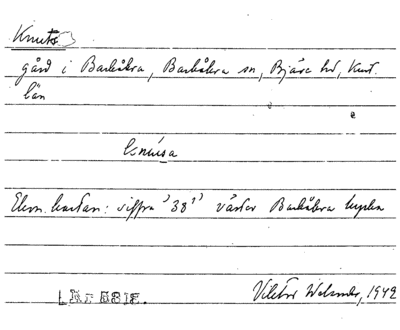 Knuts
gård i Barkåkra, Barkåkra sn, Bjäre hd, Krist.
län
Ekon. kartan: siffra '38' väster Barkåkra kyrka
Viktor Welander, 1942